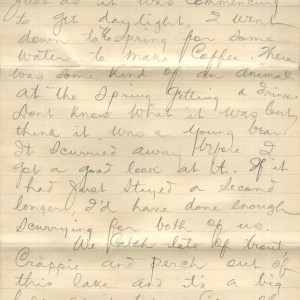 Just as it was commencing
to get daylight. I went
down to the Spring for some
Water to Make Coffee. There
was some kind of an animal
at the Spring getting a Drink
Dont know what it was but
think it was a young bear.
It scurried away before I
got a good look at it. If it
had Just stayed a Second
longer I'd have done enough
scurrying for both of us.
We Catch lots of trout
Crappie and perch out of
this lake and it's a big